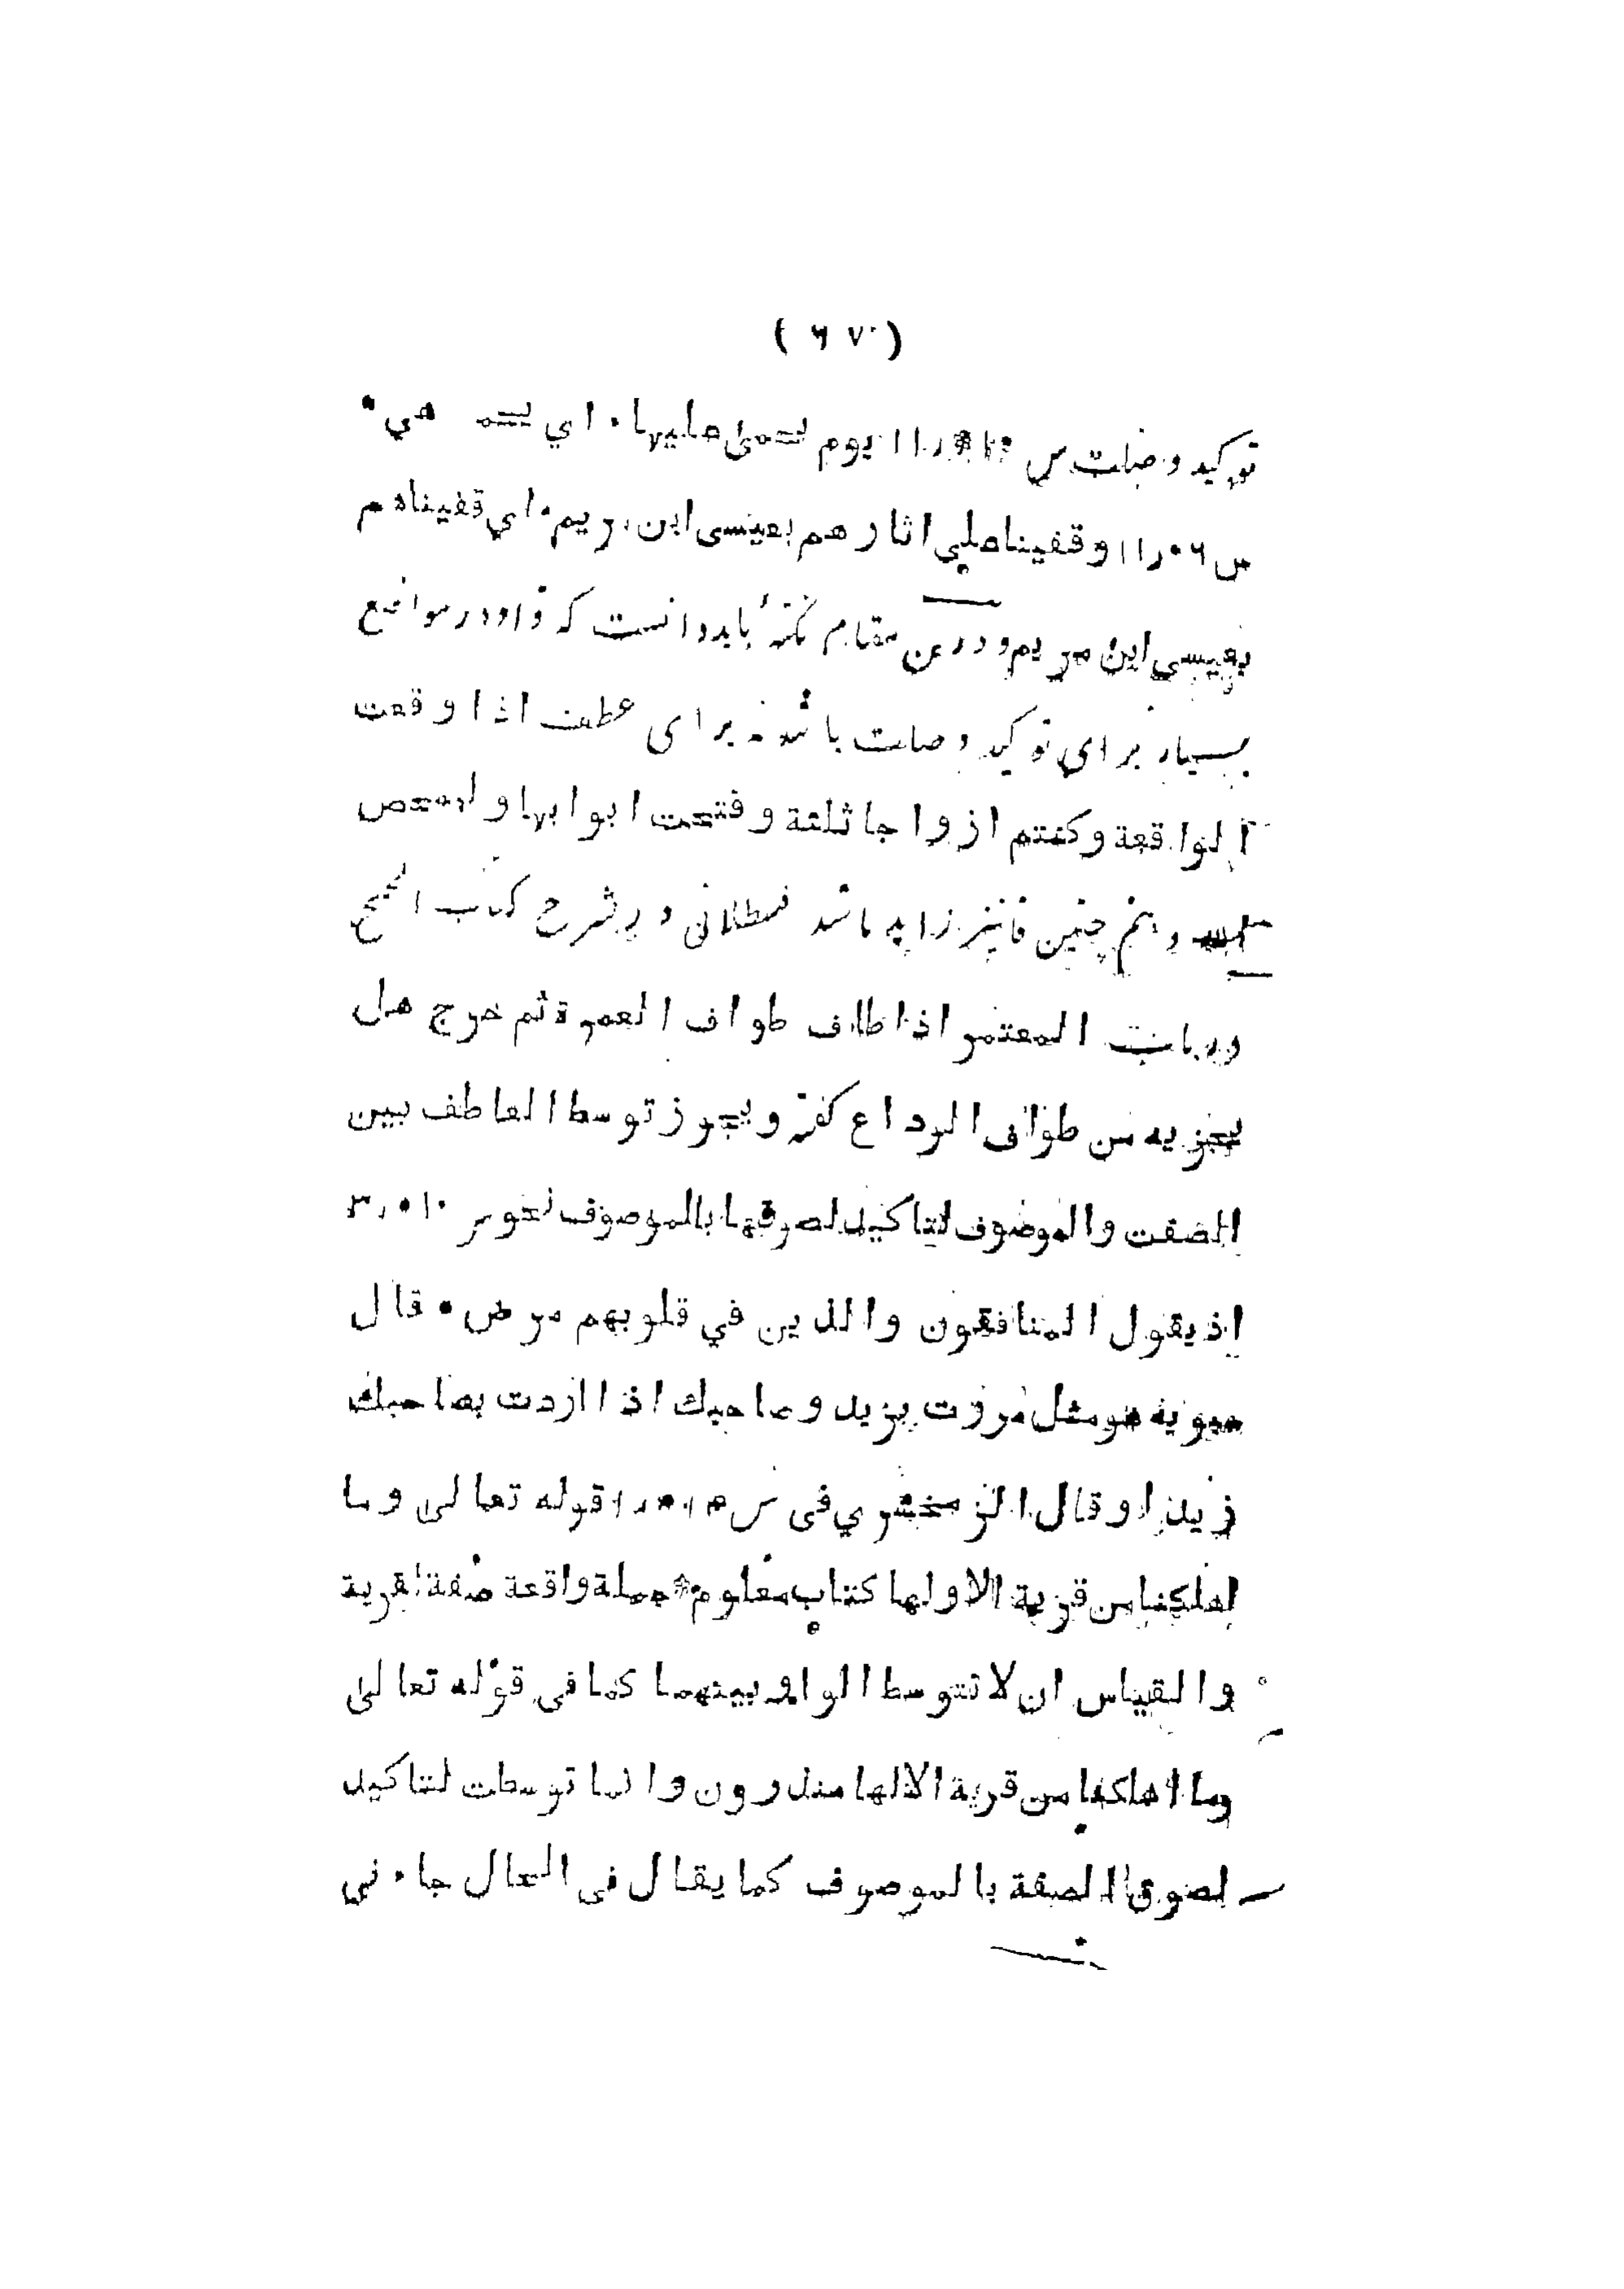 ( ٦٧٠ )
توکید وصلت س يوم يحمى عليها ٠ اي يحمـ هي ٠
س ٦ ٥ ر ١١ وقفينا على اثارهم بعيسى ابن مريم ٠ اي قفيناهم
بعيسى ابن مريم و درین مقام نکتهٔ باید دانست که واو در مواضع
بسیار برای توکید وصلت باشد نه برای عطف اذا وقعت
الواقعة وكنتم ازواجا ثلثة وفتحت ابوابها وليمحص
الله و هم چنین فا نیز زاید باشد قسطلانی در شرح کتاب الحج
وباب المعتمر اذا طاف طواف العمرة ثم خرج هل
يجزيه من طواف الوداع گفته ويجوز توسط العاطف بين
الصفت والموصوف لتاكيد لصوقها بالموصوف نحو س ١٠ ٥ ر ٣
اذ يقول المنافقون والذين في قلوبهم مرض ٠ قال
سيبويه هو مثل مررت بزيد وصاحبك اذا اردت بصاحبك
زيدا وقال الزمخشري فى س قوله تعالى وما
اهلكنا من قرية الا ولها كتاب معلوم * جملة واقعة صفة لقرية
والقياس ان لا تتوسط الواو بينهما كما فى قوله تعالى
وما اهلكنا من قرية الا لها منذرون وانما توسطت لتاكيد
لصوق الصفة بالموصوف كما يقال فى الحال جاءني